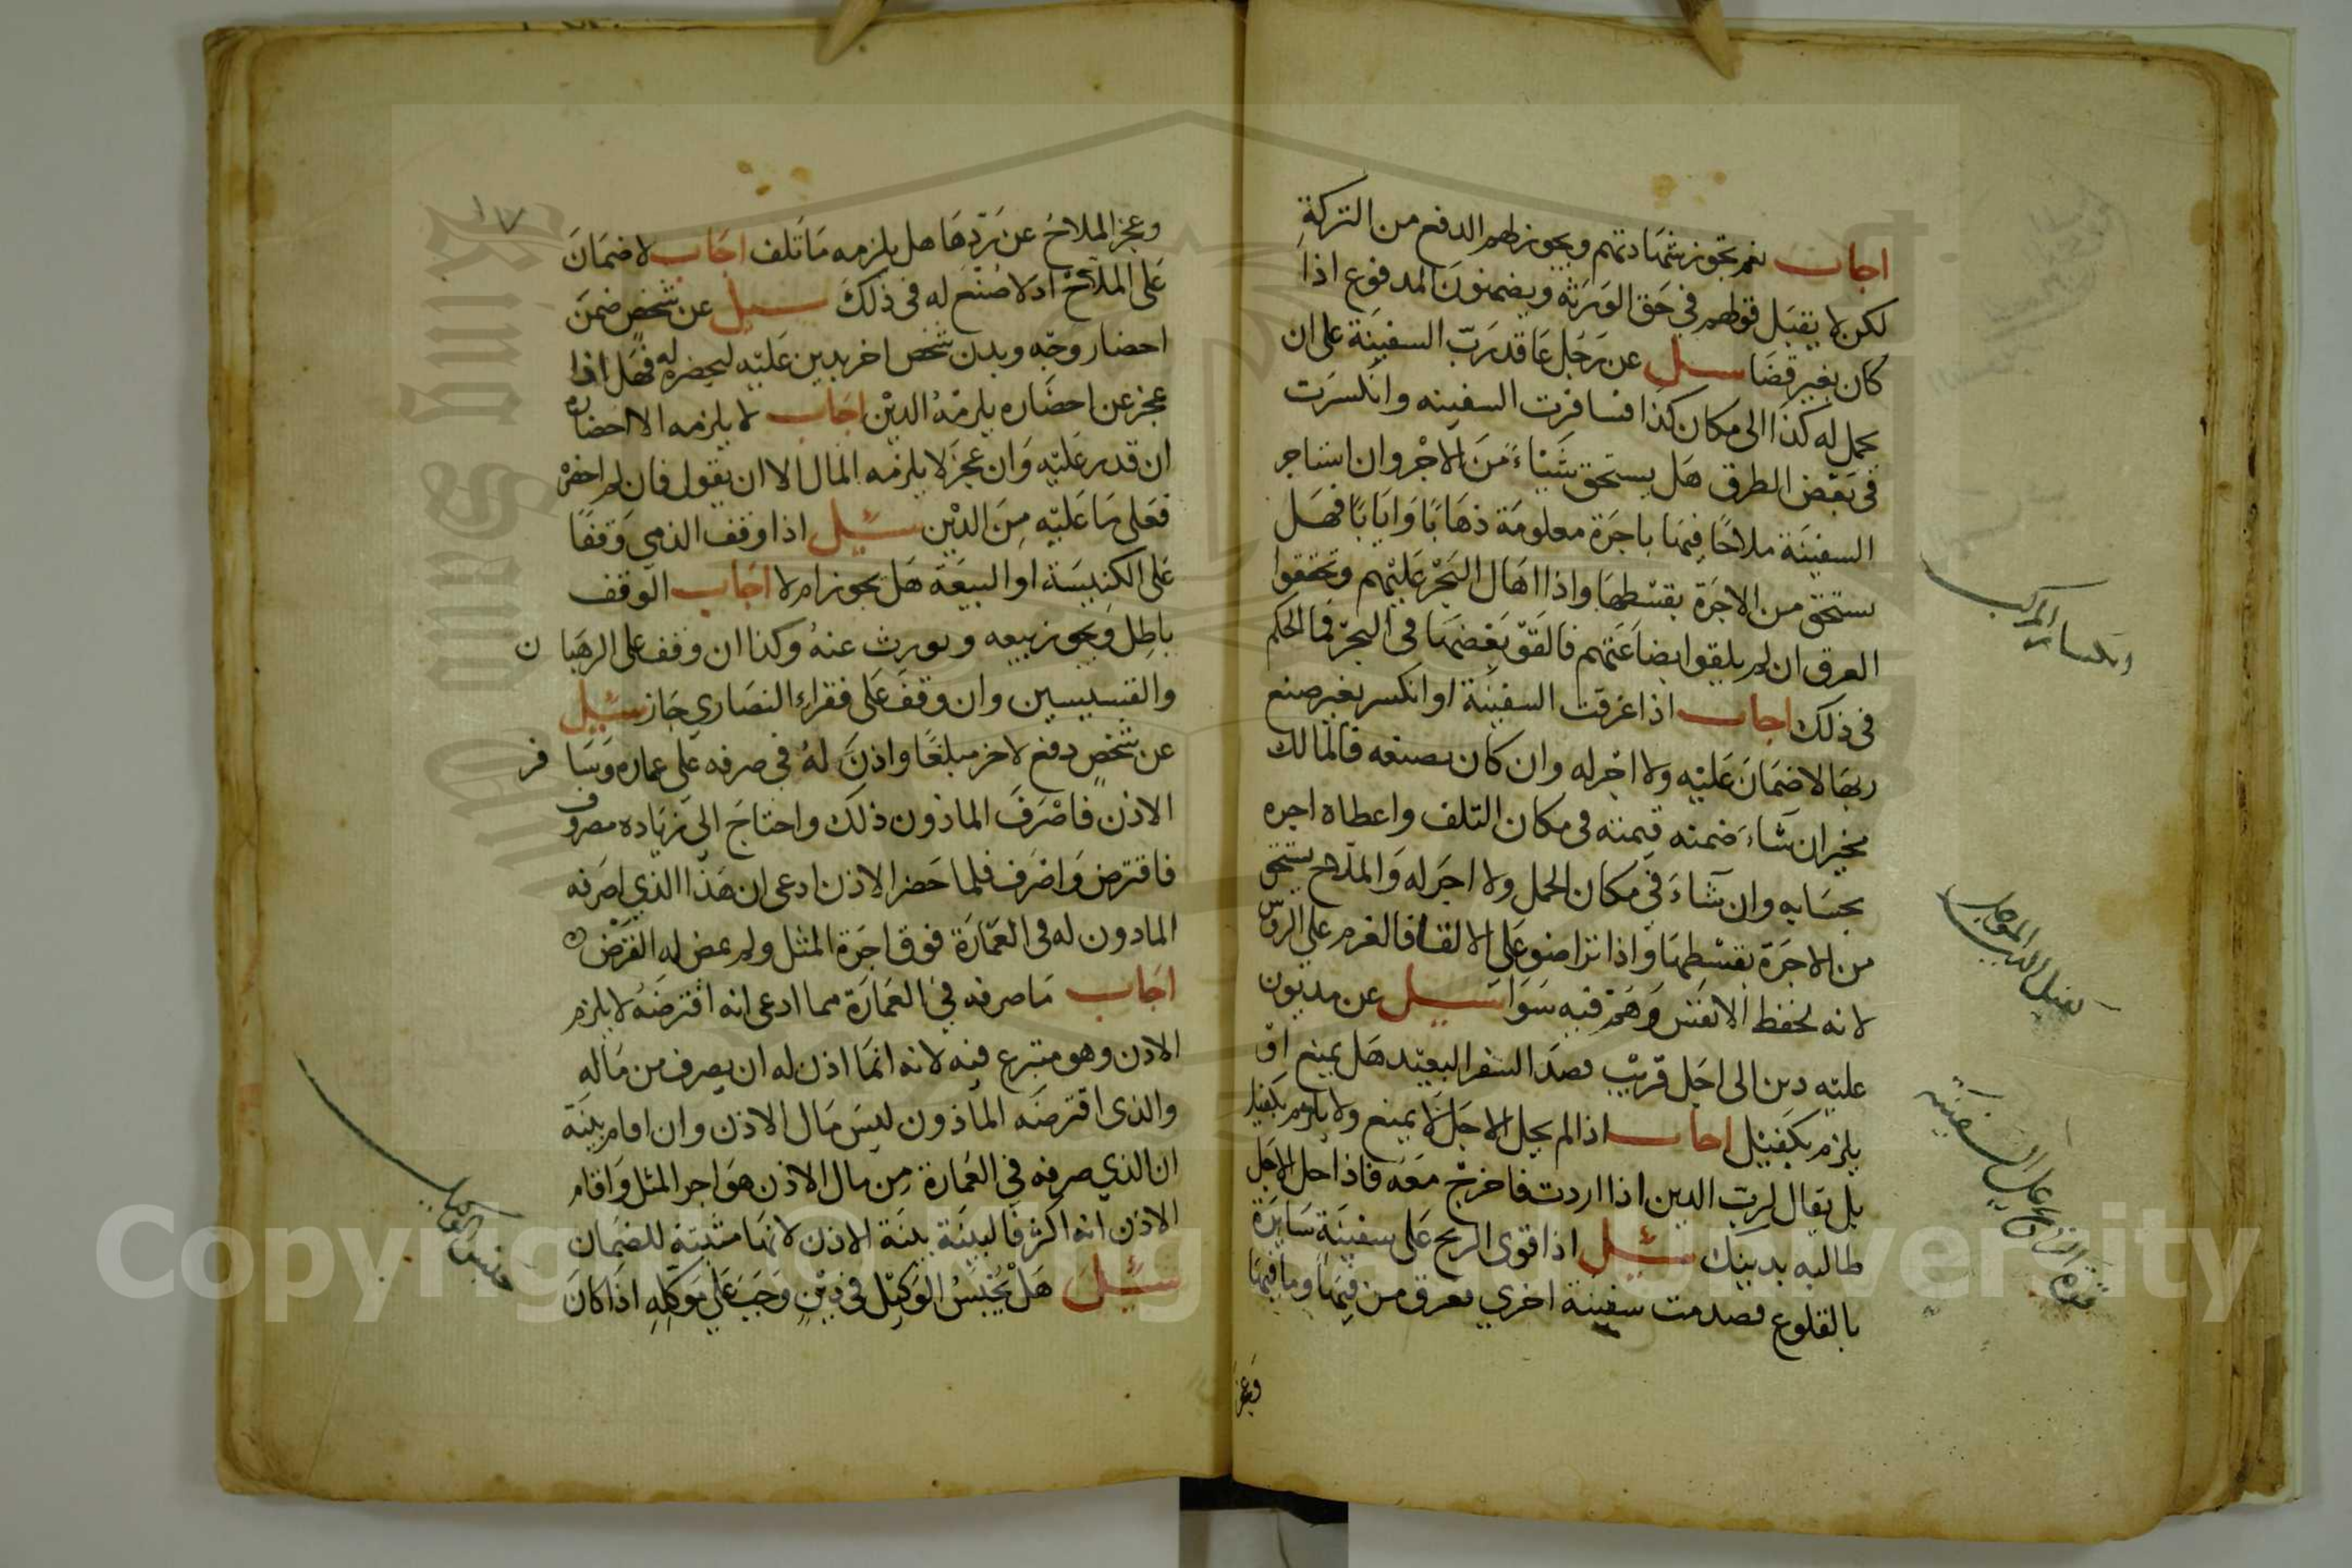 اجاب نعم تجوز شهادتهم ويجوز لهم الدفع من التركة
لكن لا يقبل قولهم في حق الورثه ويضمنون المدفوع اذا
كان بغير قضا سيل عن رجل عاقد رب السفينة على ان
يحمل له كذا الى مكان كذا فسافرت السفينه وانكسرت
في بعض الطرق هل يستحق شيئاء من الاجر وان استاجر
السفينة ملاحا فيها باجرة معلومة ذهابا وايابا فهل
يستحق من الاجرة بقسطها واذا اهال البحر عليهم وتحققوا
الغرق ان لم يلقوا بضاعتهم فالقو بعضها في البحر فما الحكم
في ذلك اجاب اذا غرقت السفينة او انكسر بغير صنع
ربها لا ضمان عليه ولا اجر له وان كان بصنعه فالمالك
مخير ان شاء ضمنه قيمته في مكان التلف واعطاه اجره
بحسابه وان شاء في مكان الحمل ولا اجر له والملاح يستحق
من الاجرة بقسطها واذا تراضو على الالقا فالغرم على الروس
لانه لحفظ الانفس وهم فيه سوا سيل عن مديون
عليه دين الى اجل قريب قصد السفر البعيد هل يمنع او
يلزم بكفيل اجاب اذا لم يحل الاجل لا يمنع ولا يلزم بكفيل
بل يقال لرب الدين اذا اردت فاخرج معه فاذا حل الاجل
طالبه بدينك سئل اذا قوى الريح على سفينة سايرة
بالقلوع فصدمت سفينة اخري فغرق من فيها وما فيها
وعجز
انكسار المركب
على السفينه
١٧
وعجز الملاح عن ردها هل يلزمه ما تلف اجاب لا ضمان
على الملاح اذ لا صنع له في ذلك سيل عن شخص ضمن
احضار وجه وبدن شخص اخر بدين عليه ليحضره له فهل اذا
عجز عن احضاره يلزمه الدين اجاب لا يلزمه الا احضاره
ان قدر عليه وان عجز لا يلزمه المال الا ان يقول فان لم احضره
فعلى ما عليه من الدين سئل اذا وقف الذمي وقفا
على الكنيسة او البيعة هل يجوز ام لا اجاب الوقف
باطل ويجوز بيعه ويورث عنه وكذا ان وقف على الرهبان
والقسيسين وان وقف على فقراء النصارى جاز سئل
عن شخص دفع لاخر مبلغا واذن له في صرفه على عماره وسافر
الاذن فاصرف الماذون ذلك واحتاج الى زياده مصروف
فاقترض واصرف فلما حضر الاذن ادعى ان هذا الذي اصرفه
الماذون له في العمارة فوق اجرة المثل ولم يمض له القرض
اجاب ما صرفه في العمارة مما ادعى انه اقترضه لا يلزم
الاذن وهو متبرع فيه لانه انما اذن له ان يصرف من ماله
والذي اقترضه الماذون ليس مال الاذن وان اقام بينة
ان الذي صرفه في العمارة من مال الاذن هو اجر المثل واقام
الاذن انه اكثر فالبينة بينة الاذن لانها مثبتة للضمان
سئل هل يحبس الوكيل في دين وجب على موكله اذا كان
حبس الوكيل
Copyright © King Saud University